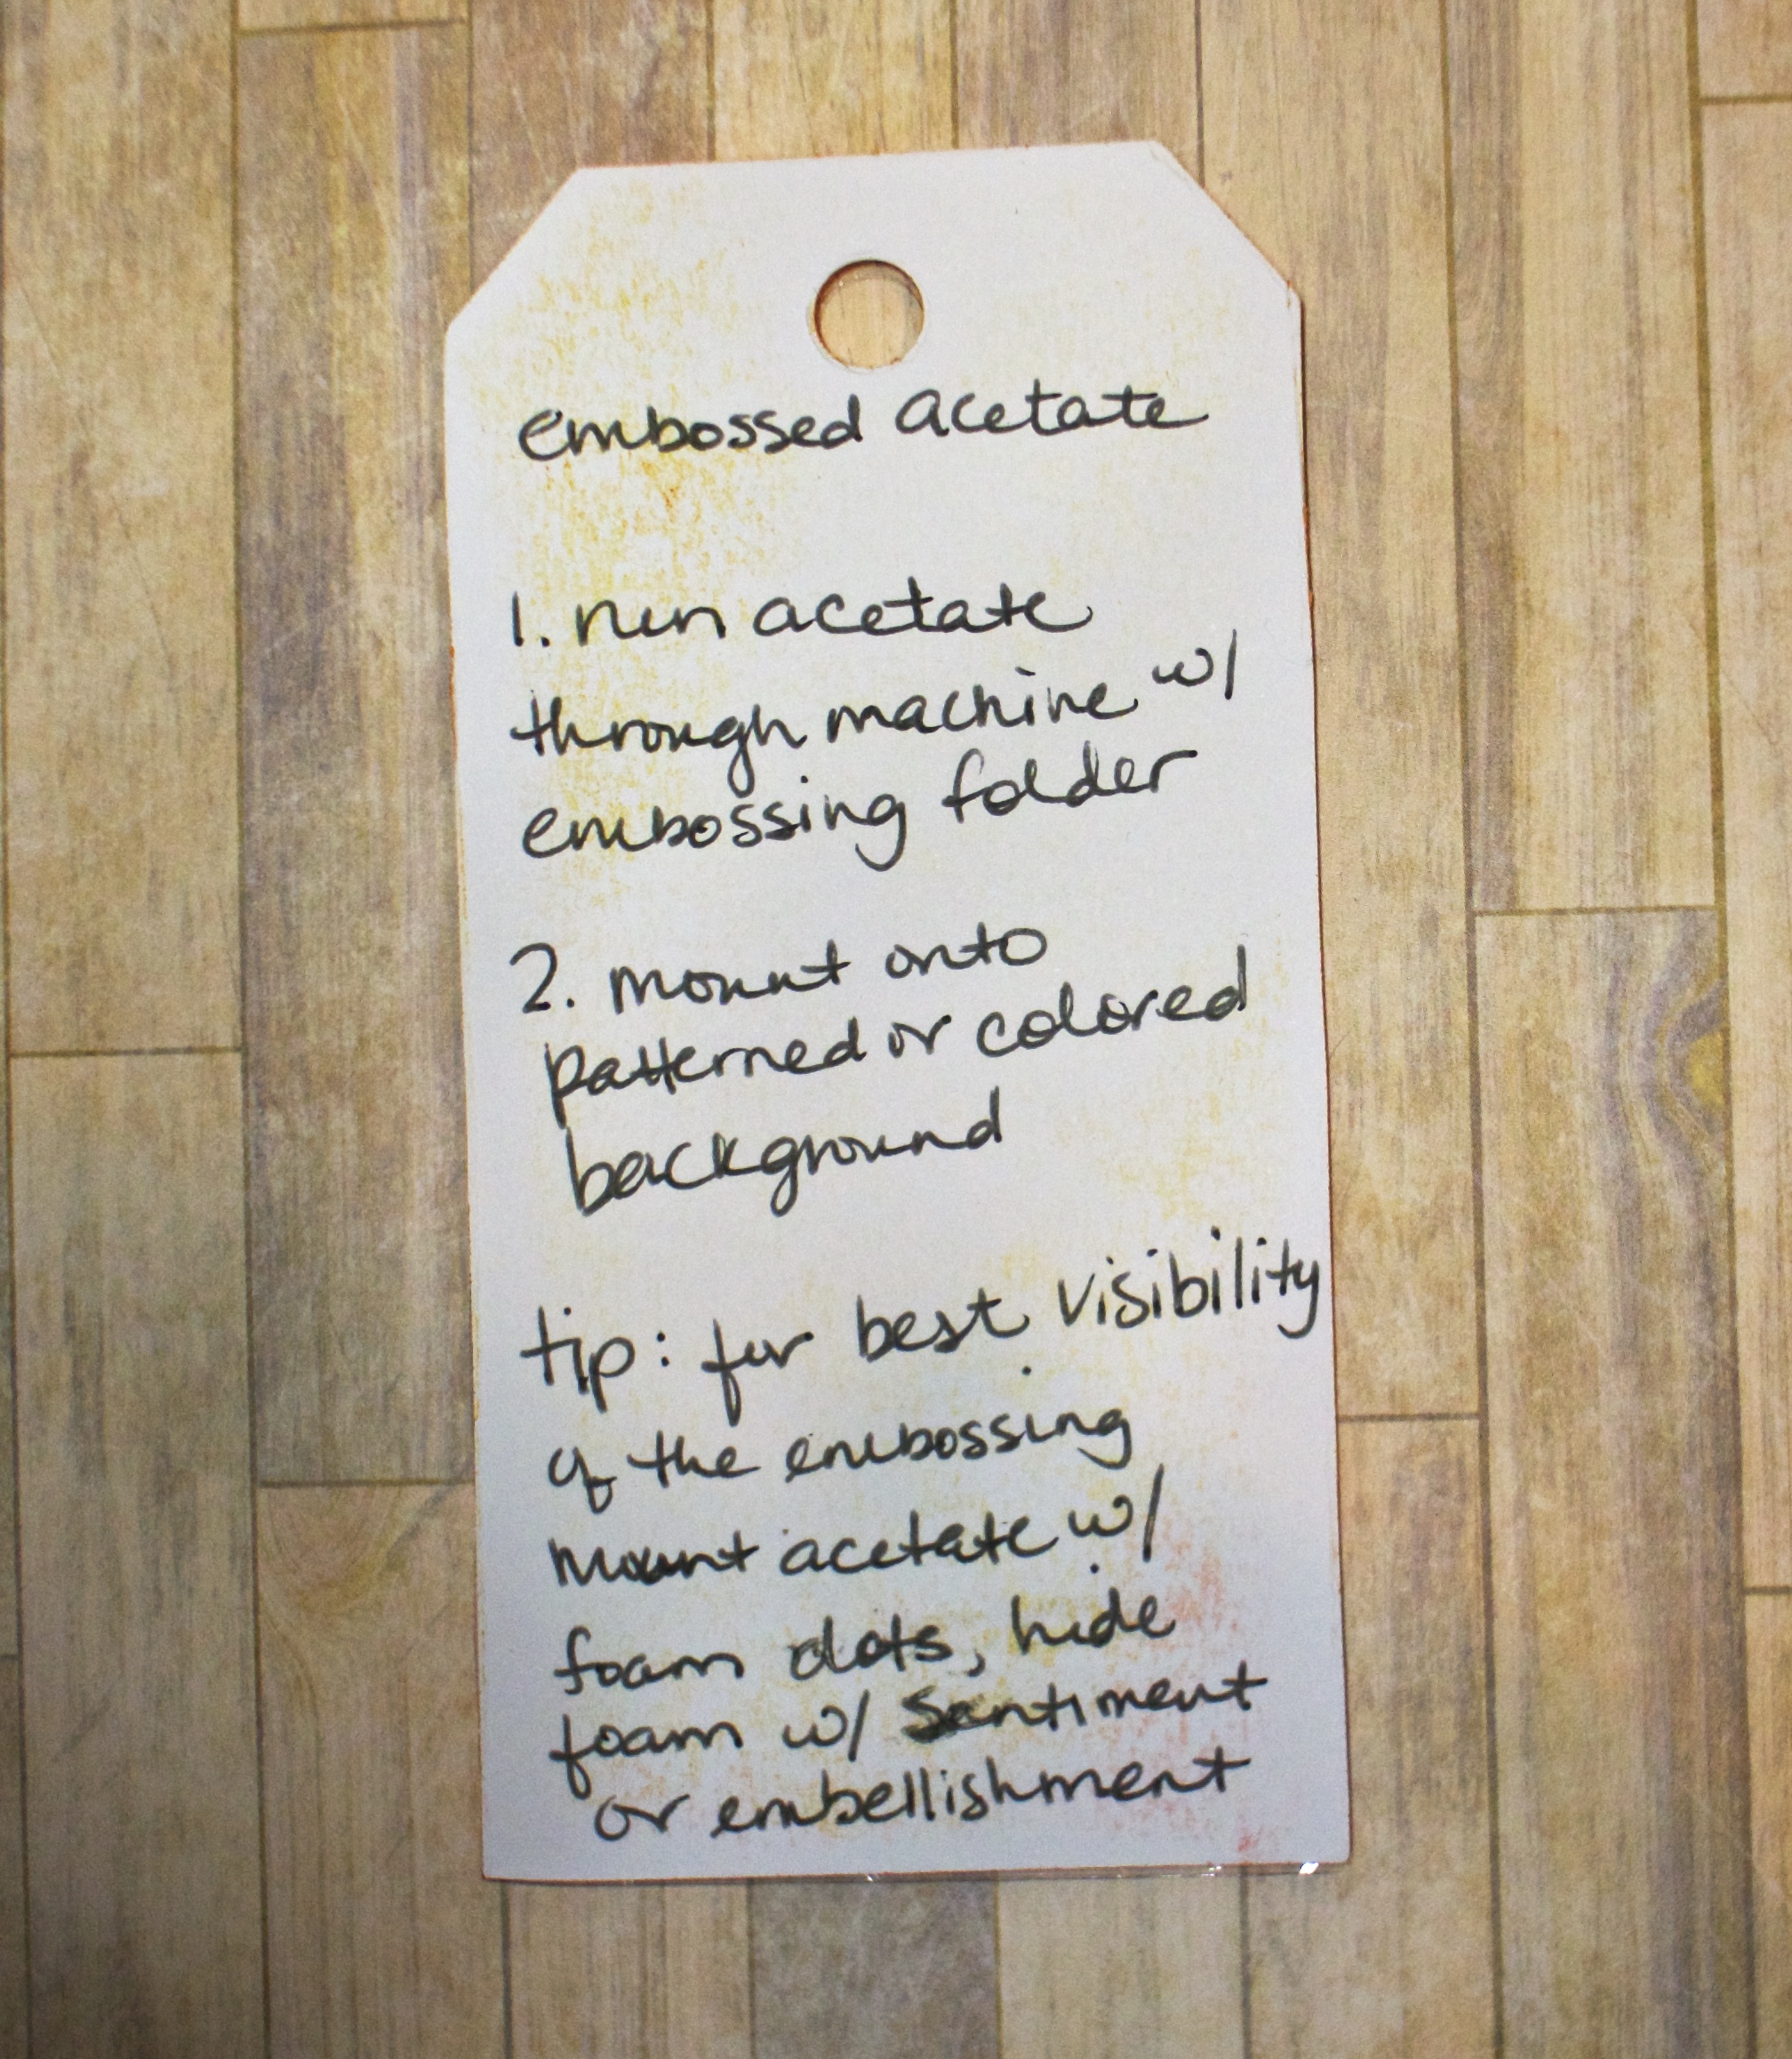 embossed acetate
1. run acetate
through machine w/
embossing folder
2. mount onto
patterned or colored
background
tip: for best visibility
of the embossing
mount acetate w/
foam dots, hide
foam w/ sentiment
or embellishment